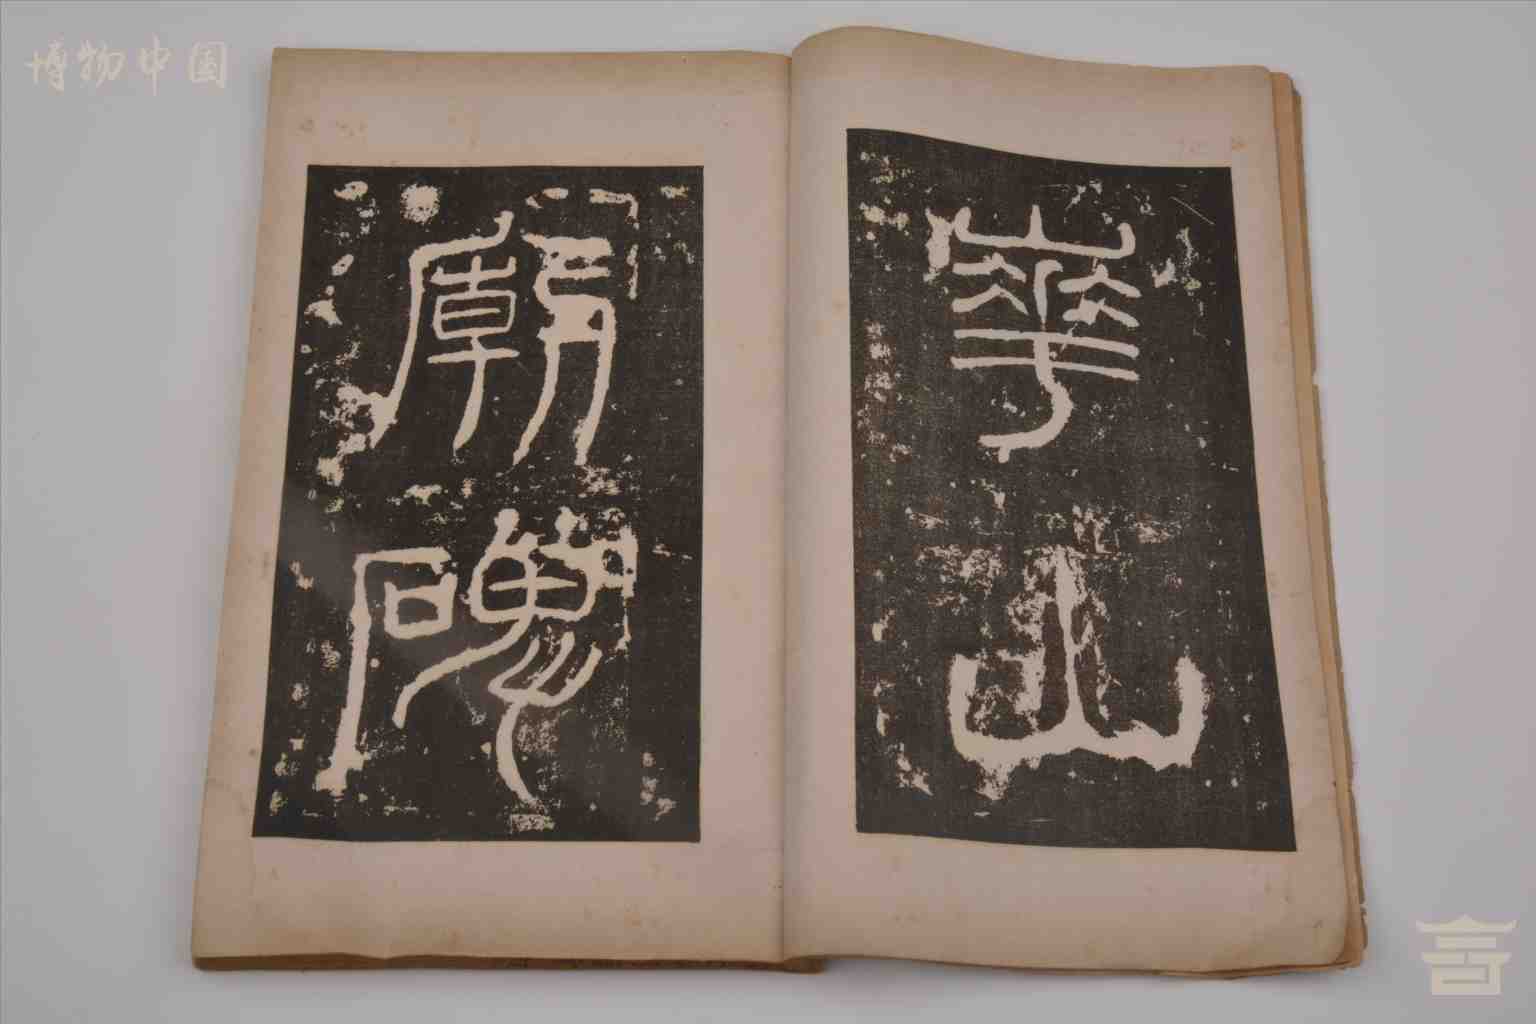 博物中国
華山
廟碑